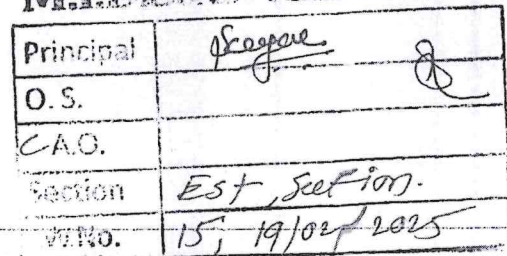 Principal
O.S.
C.A.O.
Section Est, Section.
W.No. 15, 19/02/2025